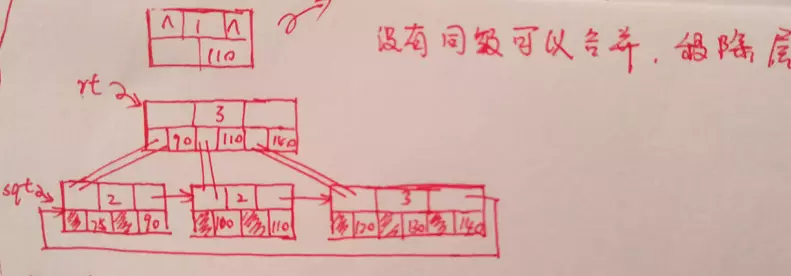 ∧ 1 ∧
110
没有同级可以合并.级除层
rt
3
90 110 140
sqt
2 2 3
25 90 100 110 120 130 140